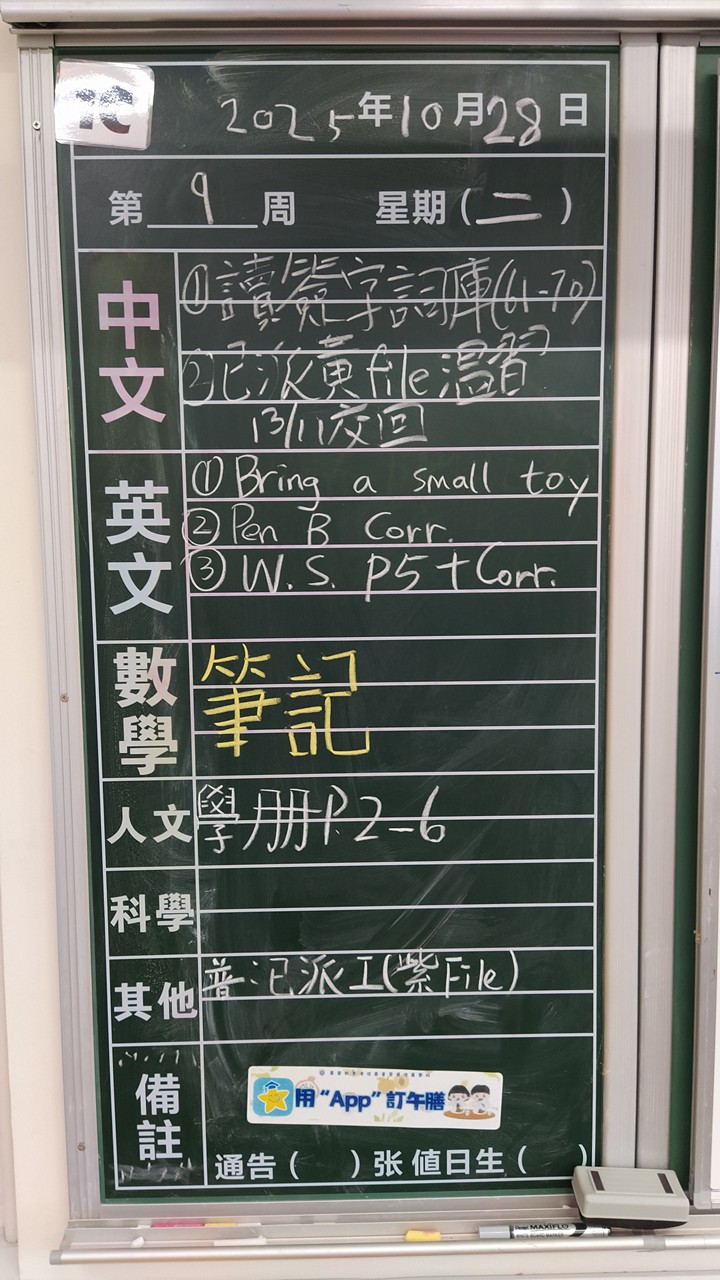 1C
2025年10月28日
第 9 周 星期(二)
中文
①讀簽字詞庫(61-70)
②已派黃file溫習
13/11交回
英文
① Bring a small toy
② Pen B Corr.
③ W.S. P5 + Corr.
數學
筆記
人文
學册P.2-6
科學
其他
普:已派工(紫File)
備註
用“App”訂午膳
通告( )张 值日生( )
Pentel MAXIFLO
WHITE BOARD MARKER